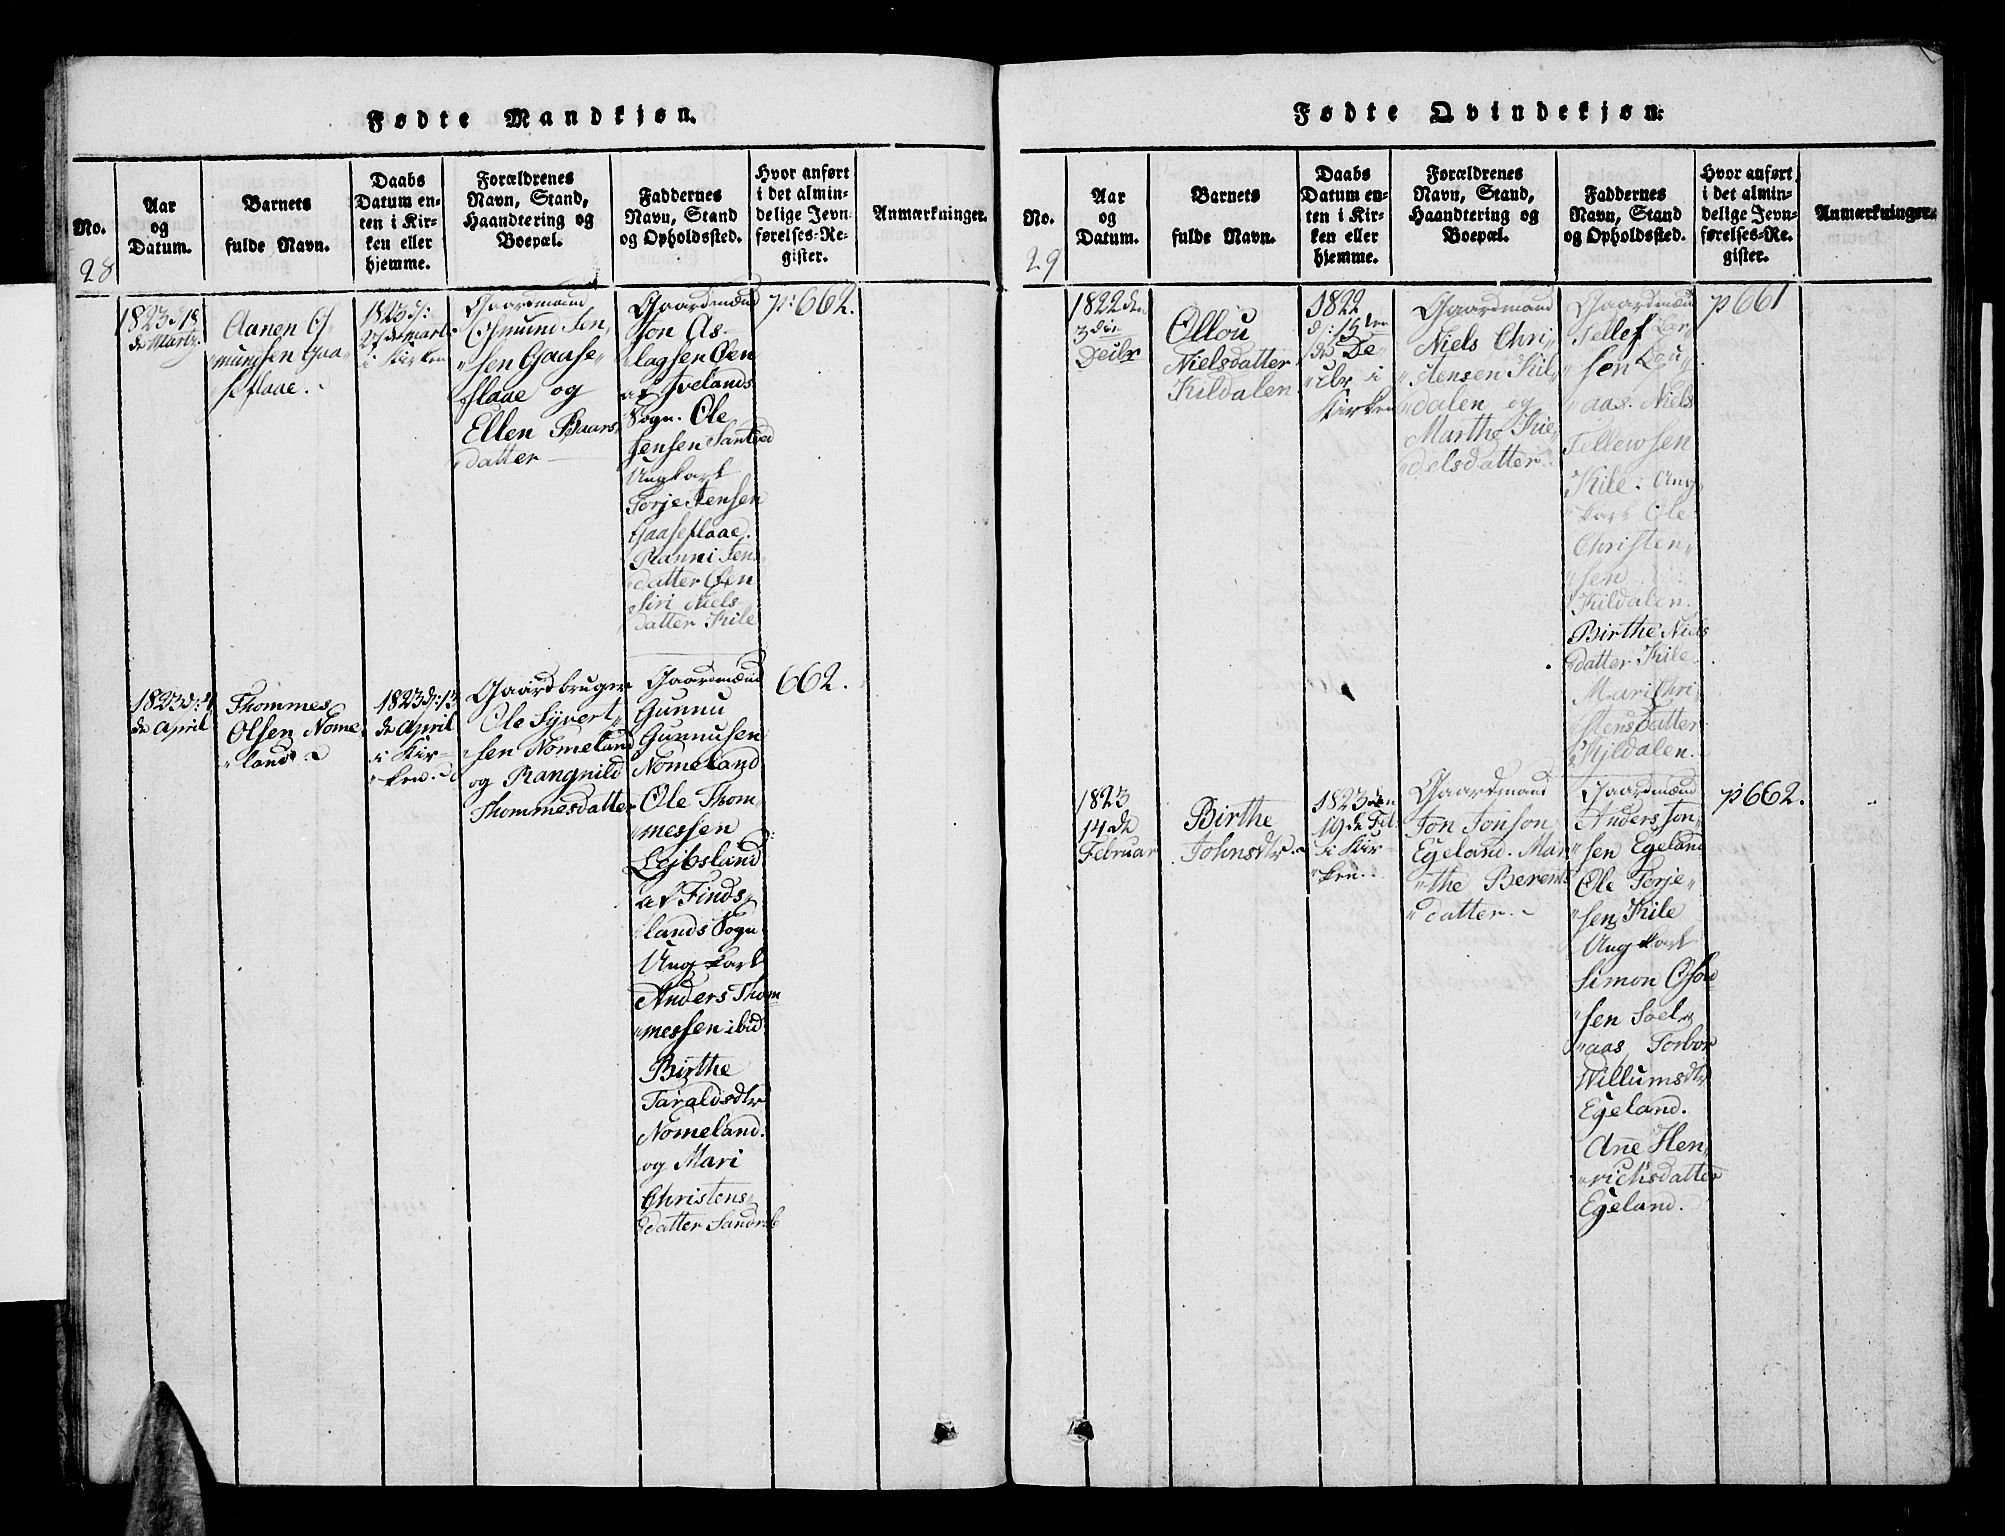 Fødte Mandkjøn.
No.
28
Aar
og
Datum.
Barnets
fulde Navn.
Daabs
Datum en-
ten i Kir-
ken eller
hjemme.
Forældrenes
Navn, Stand,
Haandtering og
Boepæl.
Faddernes
Navn, Stand
og Opholdssted.
Hvor anført
i det almin-
delige Jevn-
førelses-Re-
gister.
Anmærkninger.
1823 d 18
de Martz.
Aanen Os-
mundsen Gaa-
seflaae.
1823 d:
27 de Marts
i Kirken
Gaardmand
Osmund Jen-
sen Gaase-
flaae og
Ellen Baars
datter
Gaardmænd
Jon As-
lagsen Øen
af Ivelands
Sogn. Ole
Jensen
Ungkarl
Torje Jensen
Gaaseflaae.
Ranni Jens
datter Øen
Siri Niels
datter Kile
p: 662.
1823 d: 4
de April
Thommes
Olsen Nome-
land.
1823 d: 13
de April
i Kir-
ken.
Gaardbruger
Ole Syvert-
sen Nomeland
og Rangnild
Thommesdatter
Gaardmænd
Gunnu
Gunnusen
Nomeland
Ole Thom-
messen
Lejbsland
af Finds-
lands Sogn
Ung karl
Anders Thom
messen ibid:
Birthe
Taraldsdtr
Nomeland.
og Mari
Christens
datter
662.
Fødte Qvindekjøn.
No.
29
Aar
og
Datum.
Barnets
fulde Navn.
Daabs
Datum en-
ten i Kir-
ken eller
hjemme.
Forældrenes
Navn, Stand,
Haandtering og
Boepæl.
Faddernes
Navn, Stand
og Opholdssted.
Hvor anført
i det almin-
delige Jevn-
førelses-Re-
gister.
Anmærkninger.
1822 den
3die
Decbr
Ollou
Nielsdatter
Kildalen
1822
d: 15 den
de De-
cbr i
Kirken
Gaardmand
Niels Chri-
stensen Kil-
dalen og
Marthe Kie-
delsdatter.
Gaardmænd
Tellef Lar-
sen Løu-
aas. Niels
Tellewsen
Kile. Ung-
karl Ole
Christen-
sen
Kildalen.
Birthe Niels
datter Kile.
Mari Chri-
stensdatter
Kildalen.
p 661
1823
14 de
Februar
Birthe
Johnsdtr.
1823 den
19 de Feb.
i Kir-
ken.
Gaardmand
Jon Jonson
Egeland. Mar
the Berents
datter.
Gaardmænd
Anders Jon-
sen Egeland
Ole Torje-
sen Kile
Ung karl
Simon
sen
aas Torbor
Willumsdtr
Egeland.
Ane Hen-
richsdatter
Egeland.
p 662.